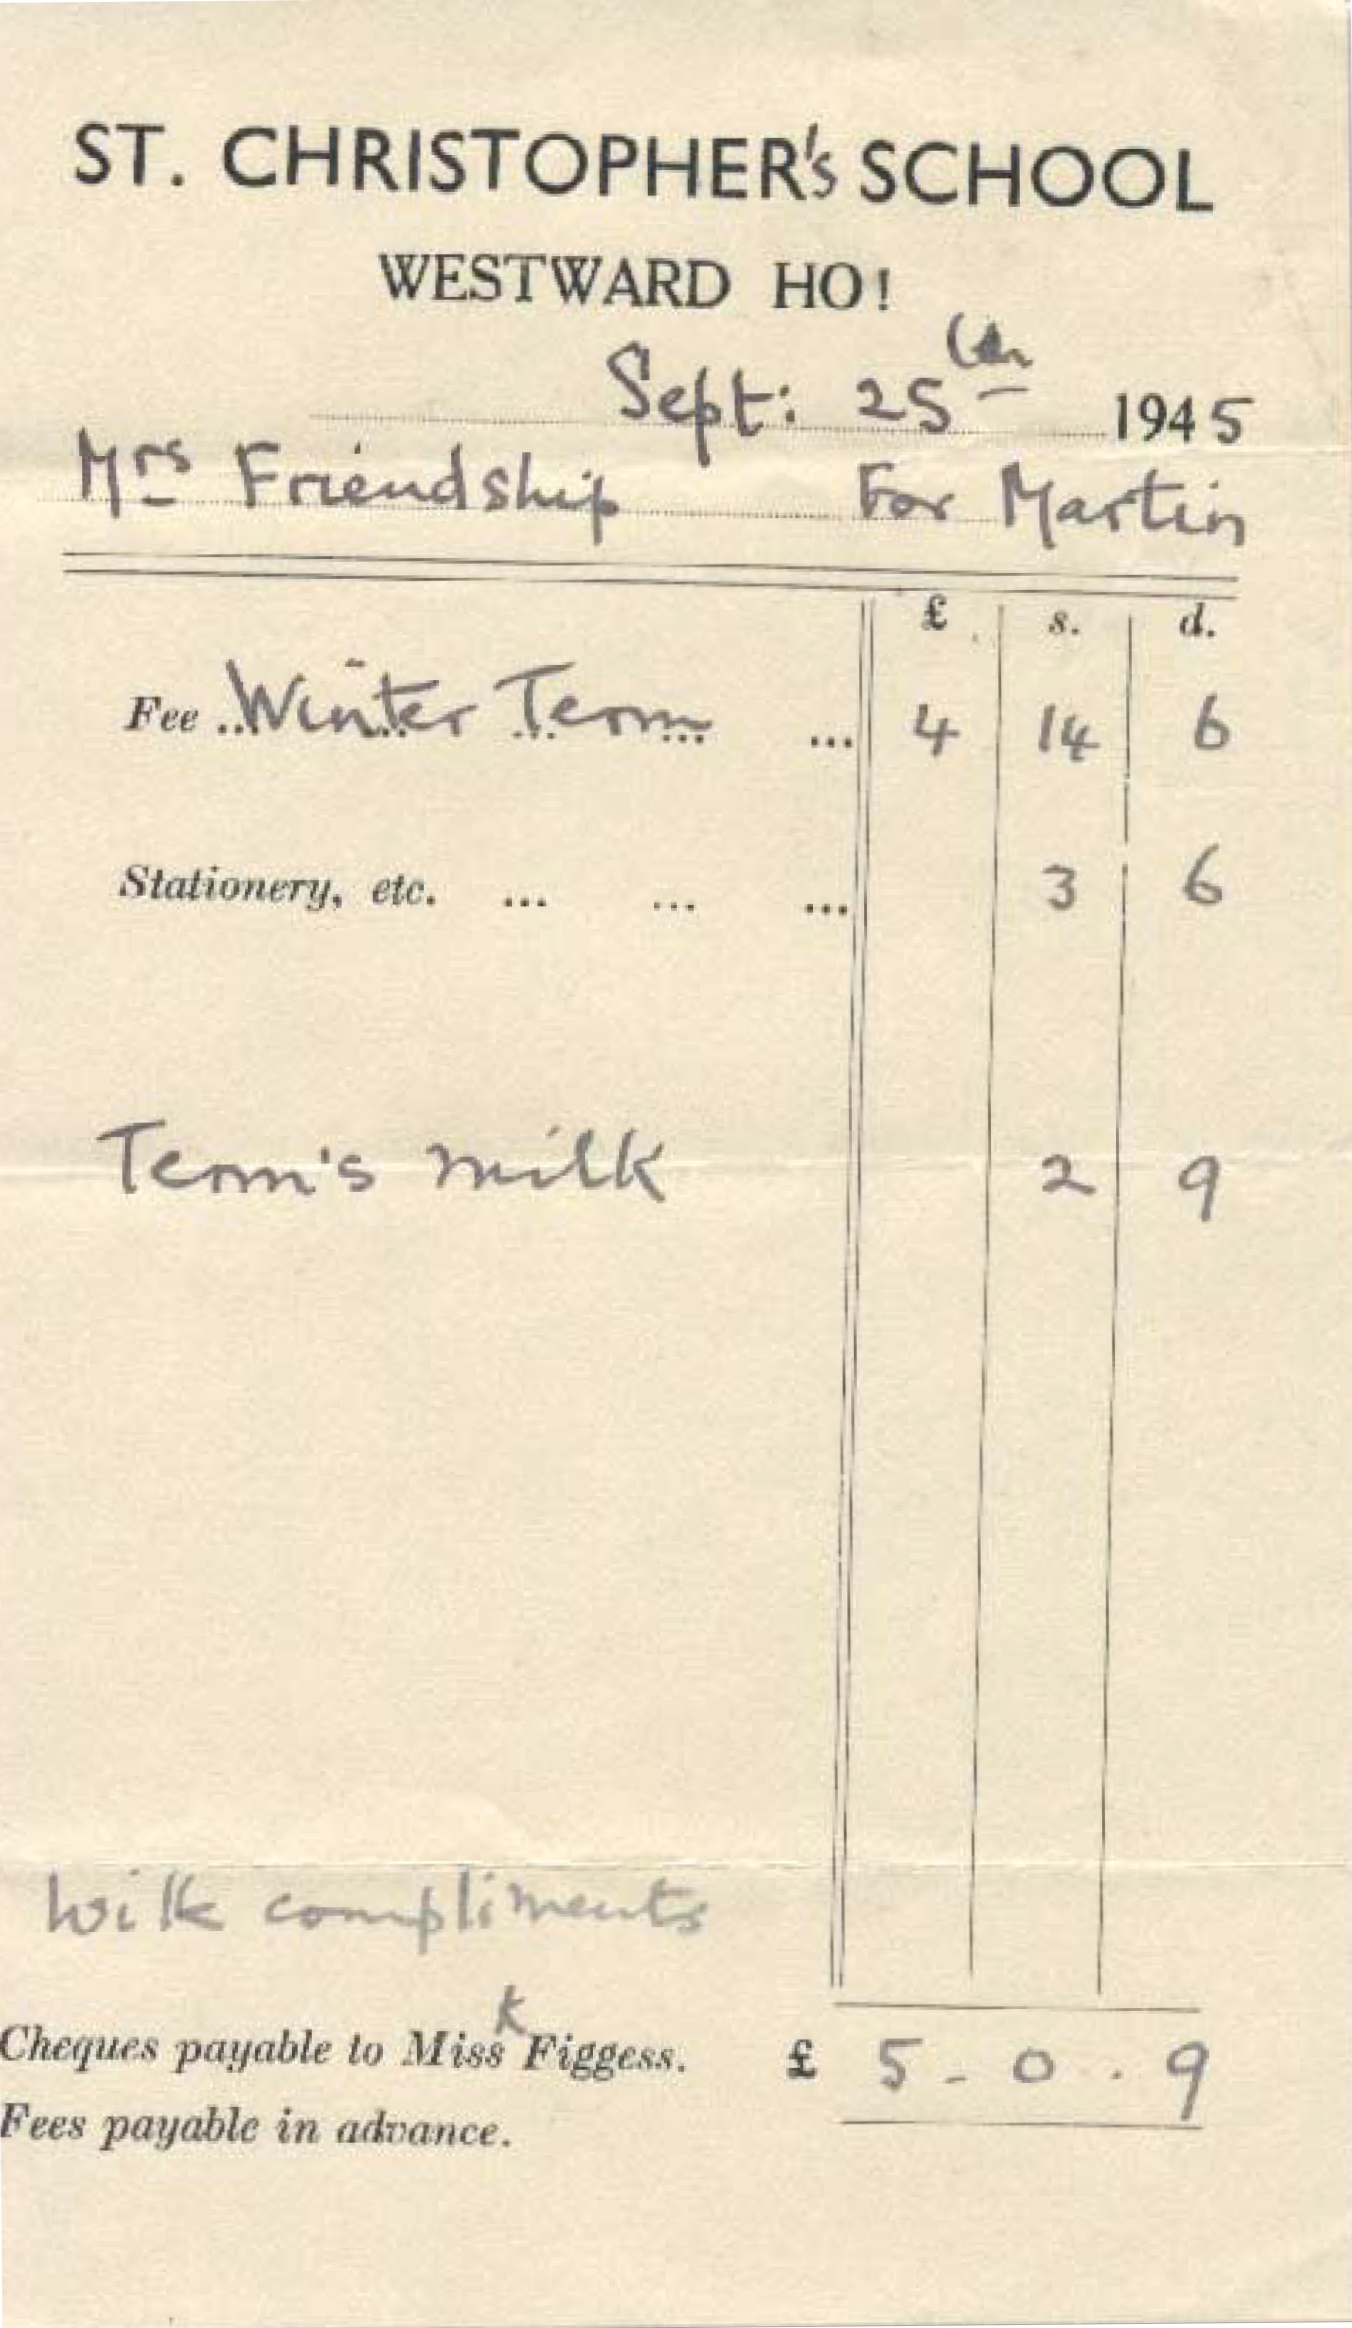 ST. CHRISTOPHER's SCHOOL
WESTWARD HO!
Sept: 25th 1945
Mrs Friendship For Martin
£ s. d.
Fee .. Winter Term ... 4 14 6
Stationery, etc. ... ... ... 3 6
Term's milk 2 9
With compliments
Cheques payable to Miss K Figgess. £ 5 - 0 . 9
Fees payable in advance.